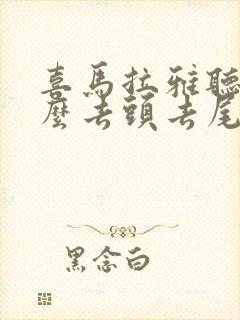 喜馬拉雅聽
麼去頭去尾
黑念白